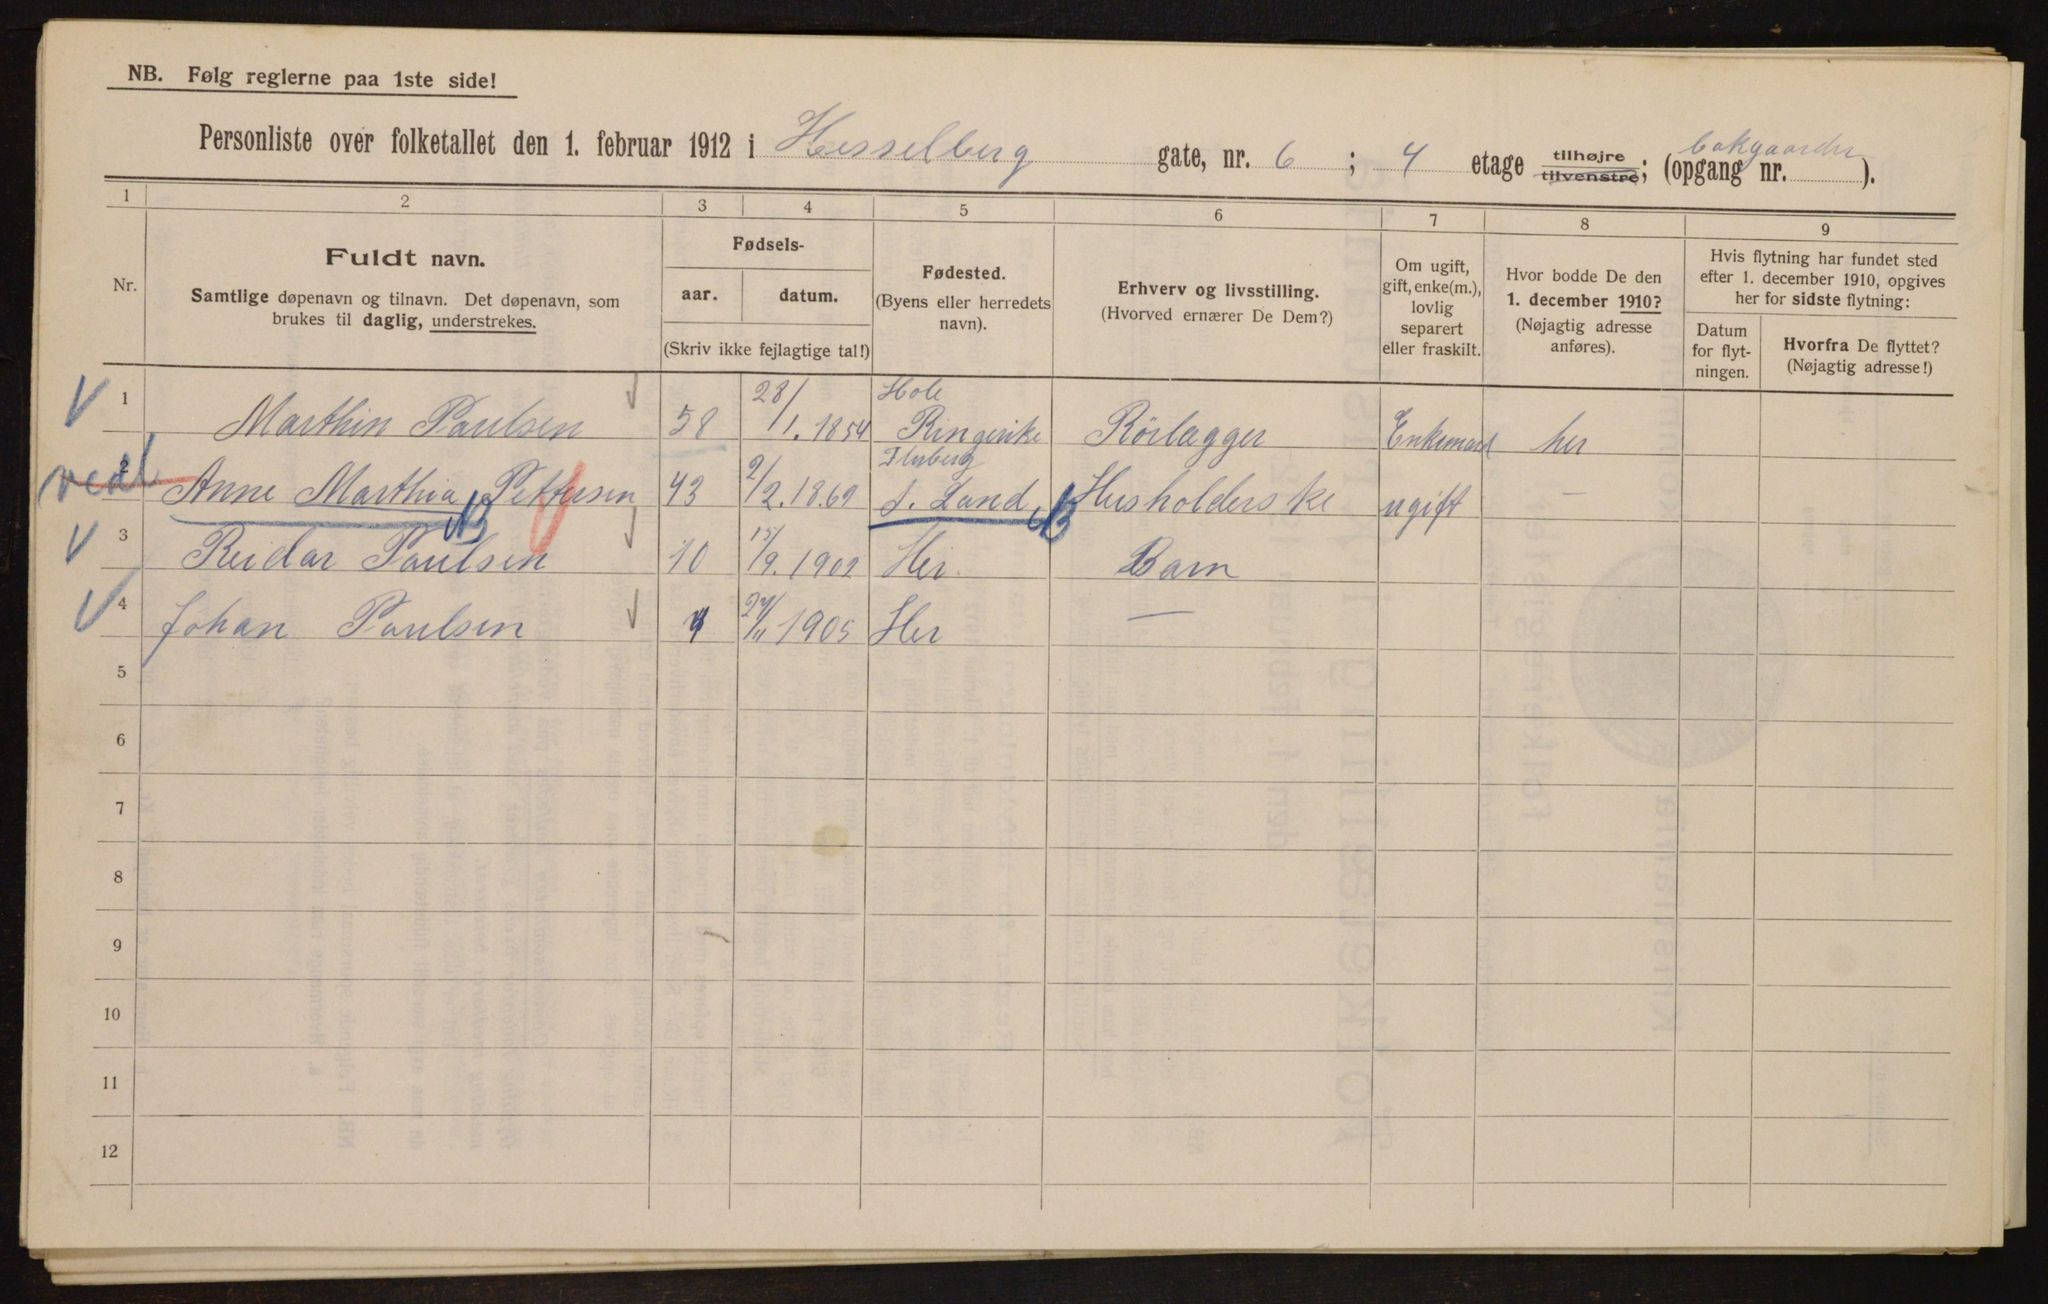 NB. Følg reglerne paa 1ste side!
Personliste over folketallet den 1. februar 1912 i Hesselberg gate, nr. 6 ; 4 etage tilhøjre tilvenstre; (opgang nr. bakgaarden ).
1 2 3 4 5 6 7 8 9
Nr.
Fuldt navn.
Samtlige døpenavn og tilnavn. Det døpenavn, som
brukes til daglig, understrekes.
Fødsels-
aar. datum.
(Skriv ikke fejlagtige tal!)
Fødested.
(Byens eller herredets
navn).
Erhverv og livsstilling.
(Hvorved ernærer De Dem?)
Om ugift,
gift, enke(m.),
lovlig
separert
eller fraskilt.
Hvor bodde De den
1. december 1910?
(Nøjagtig adresse
anføres).
Hvis flytning har fundet sted
efter 1. december 1910, opgives
her for sidste flytning:
Datum
for flyt-
ningen.
Hvorfra De flyttet?
(Nøjagtig adresse!)
1 Marthin Paulsen 58 28/1. 1854 Hole Ringerike Rörlægger Enkemand her
2 Anne Marthia Pettersen 43 2/2. 1869 Fluberg S. Land Husholderske ugift —
3 Reidar Paulsen 10 15/9. 1902 Her. Barn
4 Johan Paulsen 24/11 1905 Her —
5
6
7
8
9
10
11
12